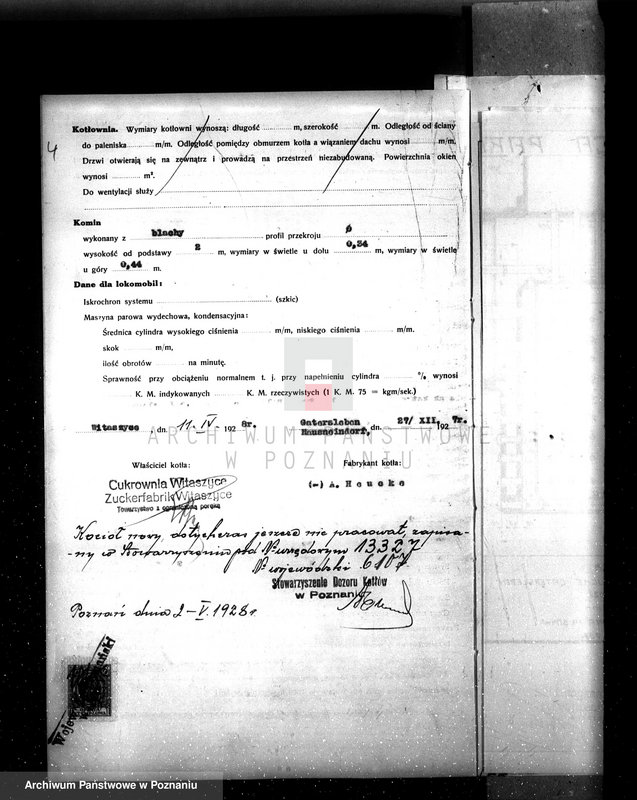 4
Kotłownia. Wymiary kotłowni wynoszą: długość m, szerokość m. Odległość od ściany
do paleniska m/m. Odległość pomiędzy obmurzem kotła a wiązaniem dachu wynosi m/m.
Drzwi otwierają się na zewnątrz i prowadzą na przestrzeń niezabudowaną. Powierzchnia okien
wynosi m².
Do wentylacji służy
Komin
wykonany z blachy profil przekroju ø
wysokość od podstawy 2 m, wymiary w świetle u dołu 0,34 m, wymiary w świetle
u góry 0,44 m.
Dane dla lokomobil:
Iskrochron systemu (szkic)
Maszyna parowa wydechowa, kondensacyjna:
Średnica cylindra wysokiego ciśnienia m/m, niskiego ciśnienia m/m.
skok m/m,
ilość obrotów na minutę.
Sprawność przy obciążeniu normalnem t. j. przy napełnieniu cylindra % wynosi
K. M. indykowanych K. M. rzeczywistych (1 K. M. 75 = kgm/sek.)
Witaszyce dn. 11-IV- 192 8r. Gatersleben dn. 27/XII. 192 7r.
Hausneindorf,
ARCHIWUM PAŃSTWOWE
W POZNANIU
Właściciel kotła: Fabrykant kotła:
Cukrownia Witaszyce
Zuckerfabrik Witaszyce
Towarzystwo z ograniczoną poręką
(-) A. Heucke
Kocioł nowy, dotychczas jeszcze nie pracował, zapisa-
ny w Stowarzyszeniu pod Nr urzędowym 13327
Nr wojewódzki 6107
Stowarzyszenie Dozoru Kotłów
w Poznaniu
Poznań dnia 2-V-1928r
Archiwum Państwowe w Poznaniu